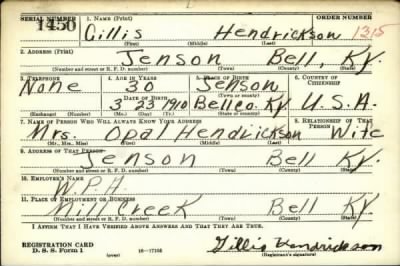 SERIAL NUMBER 1. NAME (Print) ORDER NUMBER
1450 Gillis Hendrickson 1315
(First) (Middle) (Last)
2. ADDRESS (Print)
Jenson Bell, Ky.
(Number and street or R. F. D. number) (Town) (County) (State)
3. TELEPHONE 4. AGE IN YEARS 5. PLACE OF BIRTH 6. COUNTRY OF CITIZENSHIP
None 30 Jenson
DATE OF BIRTH (Town or county)
3 23 1910 Bell co. Ky. U.S.A.
(Exchange) (Number) (Mo.) (Day) (Yr.) (State or country)
7. NAME OF PERSON WHO WILL ALWAYS KNOW YOUR ADDRESS 8. RELATIONSHIP OF THAT PERSON
Mrs. Opal Hendrickson Wife
(Mr., Mrs., Miss) (First) (Middle) (Last)
9. ADDRESS OF THAT PERSON
Jenson Bell Ky.
(Number and street or R. F. D. number) (Town) (County) (State)
10. EMPLOYER'S NAME
W.P.A.
11. PLACE OF EMPLOYMENT OR BUSINESS
Mill Creek Bell Ky.
(Number and street or R. F. D. number) (Town) (County) (State)
I AFFIRM THAT I HAVE VERIFIED ABOVE ANSWERS AND THAT THEY ARE TRUE.
REGISTRATION CARD
D. S. S. Form 1 (over) 16-17105 Gillis Hendrickson
(Registrant's signature)